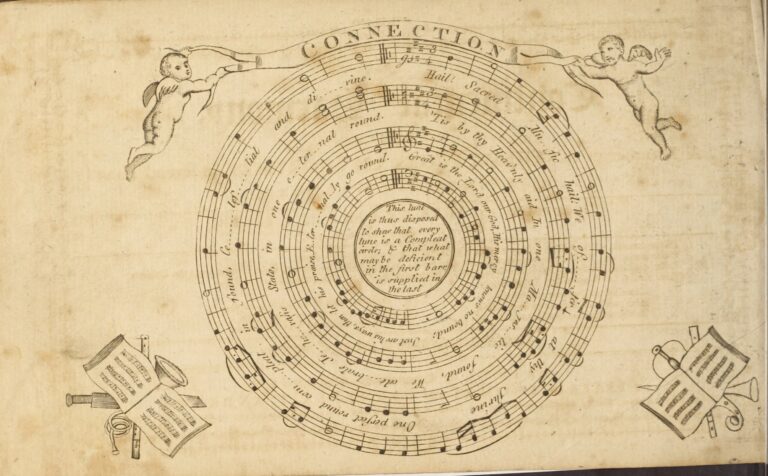 CONNECTION
Hail! Sacred Mu sic hail! We of...fer, at thy shrine One perfect round com...pleat in sound, Ce...les...tial and di...vine.
'Tis by thy Heavenly aid In one found, We cele brate Je State, in one e...ter...nal round.
Great is the Lord our God, His mercy knows no bound, Just are his ways, then to his E...ter...nal ly go round.
This tune
is thus disposed
to shew that every
tune is a Compleat
circle; & that what
may be deficient
in the first barr
is supplied in
the last